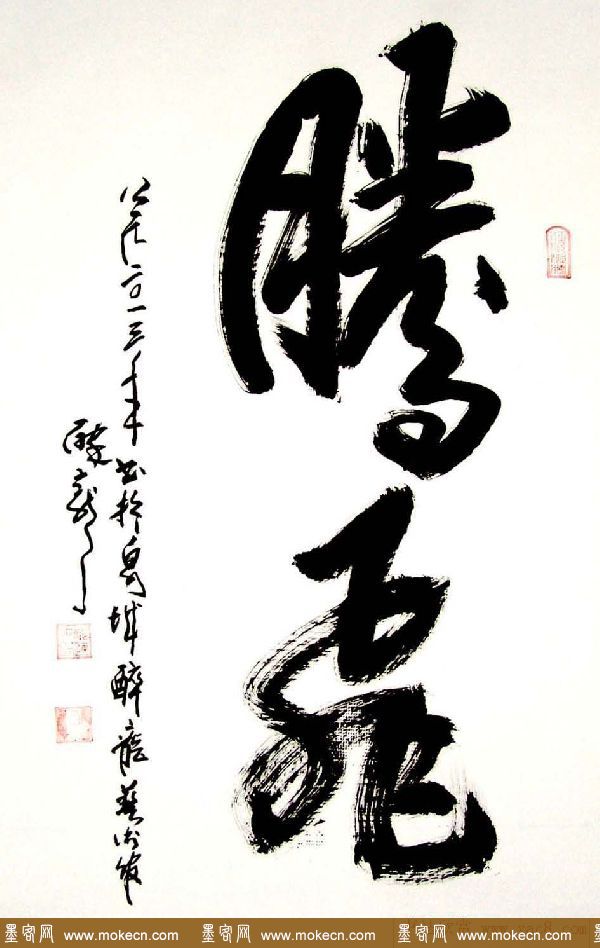 騰飛
公元二〇一三年书於泉城醉龍藝术館
醉龍
墨客网 www.mokecn.com 墨客网 www.mokecn.com 墨客网 www.mokecn.com